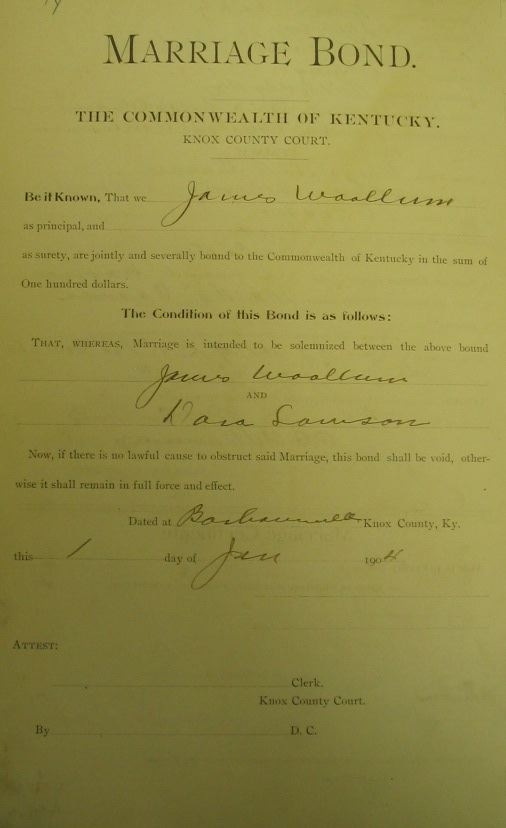 MARRIAGE BOND.
THE COMMONWEALTH OF KENTUCKY.
KNOX COUNTY COURT.
Be it Known, That we James Woollum
as principal, and
as surety, are jointly and severally bound to the Commonwealth of Kentucky in the sum of
One hundred dollars.
The Condition of this Bond is as follows:
THAT, WHEREAS, Marriage is intended to be solemnized between the above bound
James Woollum
AND
Dora Lawson
Now, if there is no lawful cause to obstruct said Marriage, this bond shall be void, other-
wise it shall remain in full force and effect.
Dated at Barbourville Knox County, Ky.
this 1 day of Jan 1904
ATTEST:
Clerk.
Knox County Court.
By D. C.